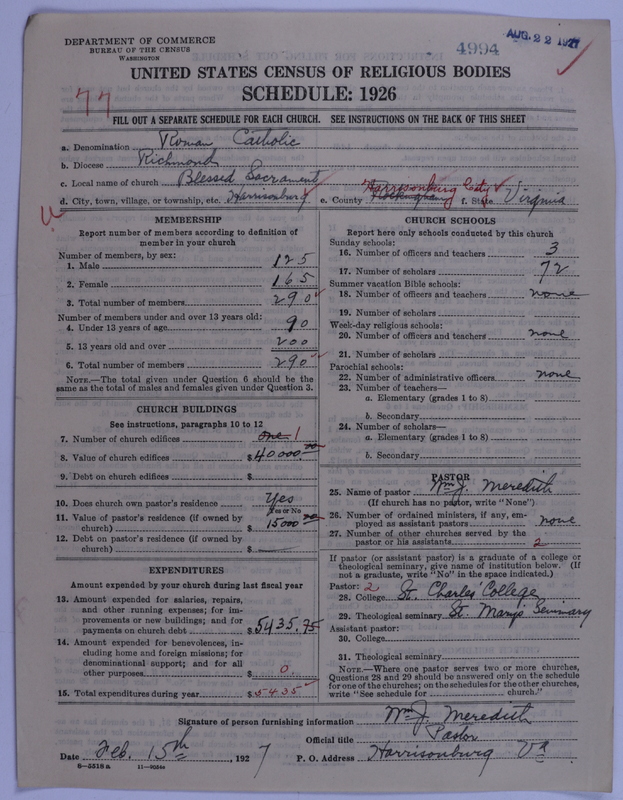 DEPARTMENT OF COMMERCE
BUREAU OF THE CENSUS
WASHINGTON
4994
AUG. 22 1927
UNITED STATES CENSUS OF RELIGIOUS BODIES
SCHEDULE: 1926
77
FILL OUT A SEPARATE SCHEDULE FOR EACH CHURCH. SEE INSTRUCTIONS ON THE BACK OF THIS SHEET
a. Denomination Roman Catholic
b. Diocese Richmond
c. Local name of church Blessed Sacrament
d. City, town, village, or township, etc. Harrisonburg e. County Rockingham Harrisonburg City f. State Virginia
MEMBERSHIP
Report number of members according to definition of
member in your church
Number of members, by sex:
1. Male 125
2. Female 165
3. Total number of members 290
Number of members under and over 13 years old:
4. Under 13 years of age 90
5. 13 years old and over 200
6. Total number of members 290
NOTE.—The total given under Question 6 should be the
same as the total of males and females given under Question 3.
CHURCH BUILDINGS
See instructions, paragraphs 10 to 12
7. Number of church edifices one 1
8. Value of church edifices $40000
9. Debt on church edifices $
10. Does church own pastor's residence Yes
Yes or No
11. Value of pastor's residence (if owned by
church) $15000
12. Debt on pastor's residence (if owned by
church) $
EXPENDITURES
Amount expended by your church during last fiscal year
13. Amount expended for salaries, repairs,
and other running expenses; for im-
provements or new buildings; and for
payments on church debt $5435.75
14. Amount expended for benevolences, in-
cluding home and foreign missions; for
denominational support; and for all
other purposes $0
15. Total expenditures during year $5435
CHURCH SCHOOLS
Report here only schools conducted by this church
Sunday schools:
16. Number of officers and teachers 3
17. Number of scholars 72
Summer vacation Bible schools:
18. Number of officers and teachers none
19. Number of scholars
Week-day religious schools:
20. Number of officers and teachers none
21. Number of scholars
Parochial schools:
22. Number of administrative officers none
23. Number of teachers—
a. Elementary (grades 1 to 8)
b. Secondary
24. Number of scholars—
a. Elementary (grades 1 to 8)
b. Secondary
PASTOR
25. Name of pastor Wm J. Meredith
(If church has no pastor, write "None")
26. Number of ordained ministers, if any, em-
ployed as assistant pastors none
27. Number of other churches served by the
pastor or his assistants 2
If pastor (or assistant pastor) is a graduate of a college or
theological seminary, give name of institution below. (If
not a graduate, write "No" in the space indicated.)
Pastor: 2
28. College St. Charles' College
29. Theological seminary St. Mary's Seminary
Assistant pastor:
30. College
31. Theological seminary
NOTE.—Where one pastor serves two or more churches,
Questions 28 and 29 should be answered only on the schedule
for one of the churches; on the schedules for the other churches,
write "See schedule for church."
Signature of person furnishing information Wm J. Meredith
Official title Pastor
Date Feb. 15th, 1927 P. O. Address Harrisonburg Va
8—5518a 11—9054a